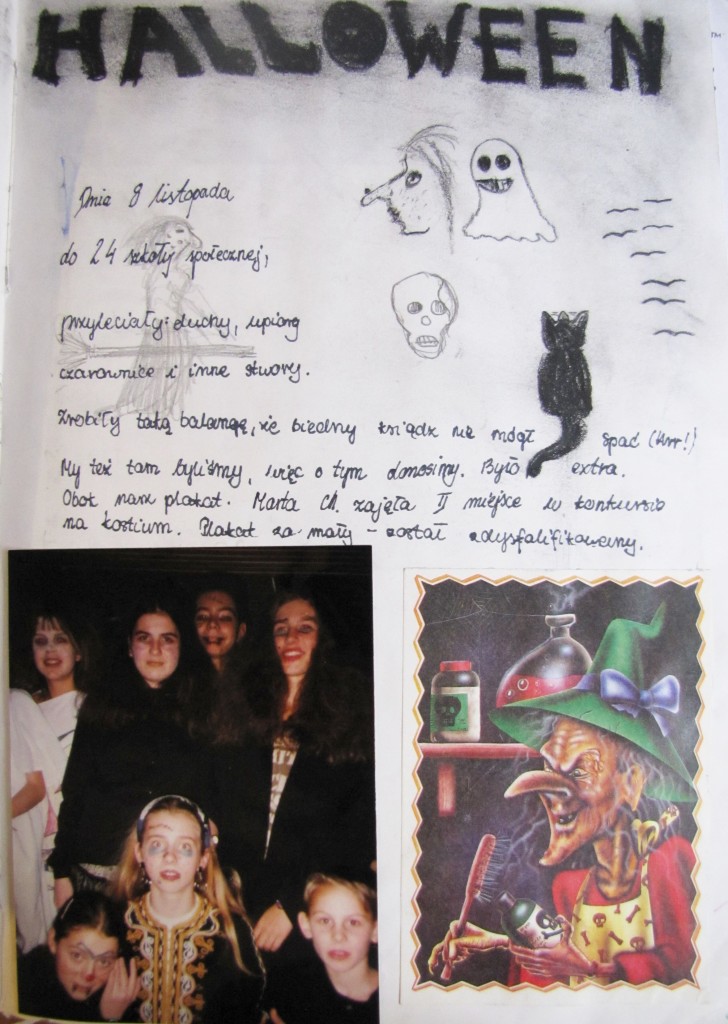 HALLOWEEN
Dnia 8 listopada
do 24 szkoły społecznej,
przyleciały: duchy, upiory
czarownice i inne stwory.
Zrobiły taką balangę, że biedny ksiądz nie mógł spać (Wrr!)
My też tam byliśmy, więc o tym donosimy. Było extra.
Obok nasz plakat. Marta Ch. zajęła II miejsce w konkursie
na kostium. Plakat za mały - został zdysfalifikowany.
TM